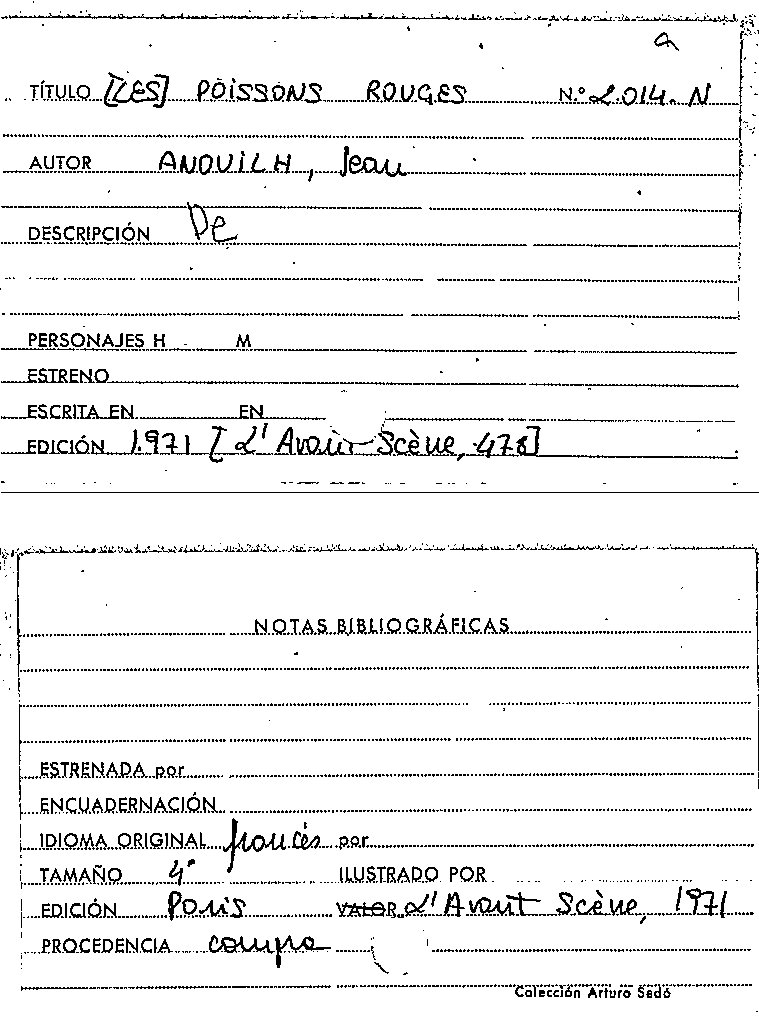 a
TÍTULO [LES] POISSONS ROUGES N.º 2.014. N
AUTOR ANOUILH, Jean
DESCRIPCIÓN De
PERSONAJES H M
ESTRENO
ESCRITA EN EN
EDICIÓN 1.971 [L' Avant-Scène, 478]
NOTAS BIBLIOGRÁFICAS
ESTRENADA por
ENCUADERNACIÓN
IDIOMA ORIGINAL francés por
TAMAÑO 4º ILUSTRADO POR
EDICIÓN París VALOR L' Avant Scène, 1971
PROCEDENCIA compra
Colección Arturo Sedó